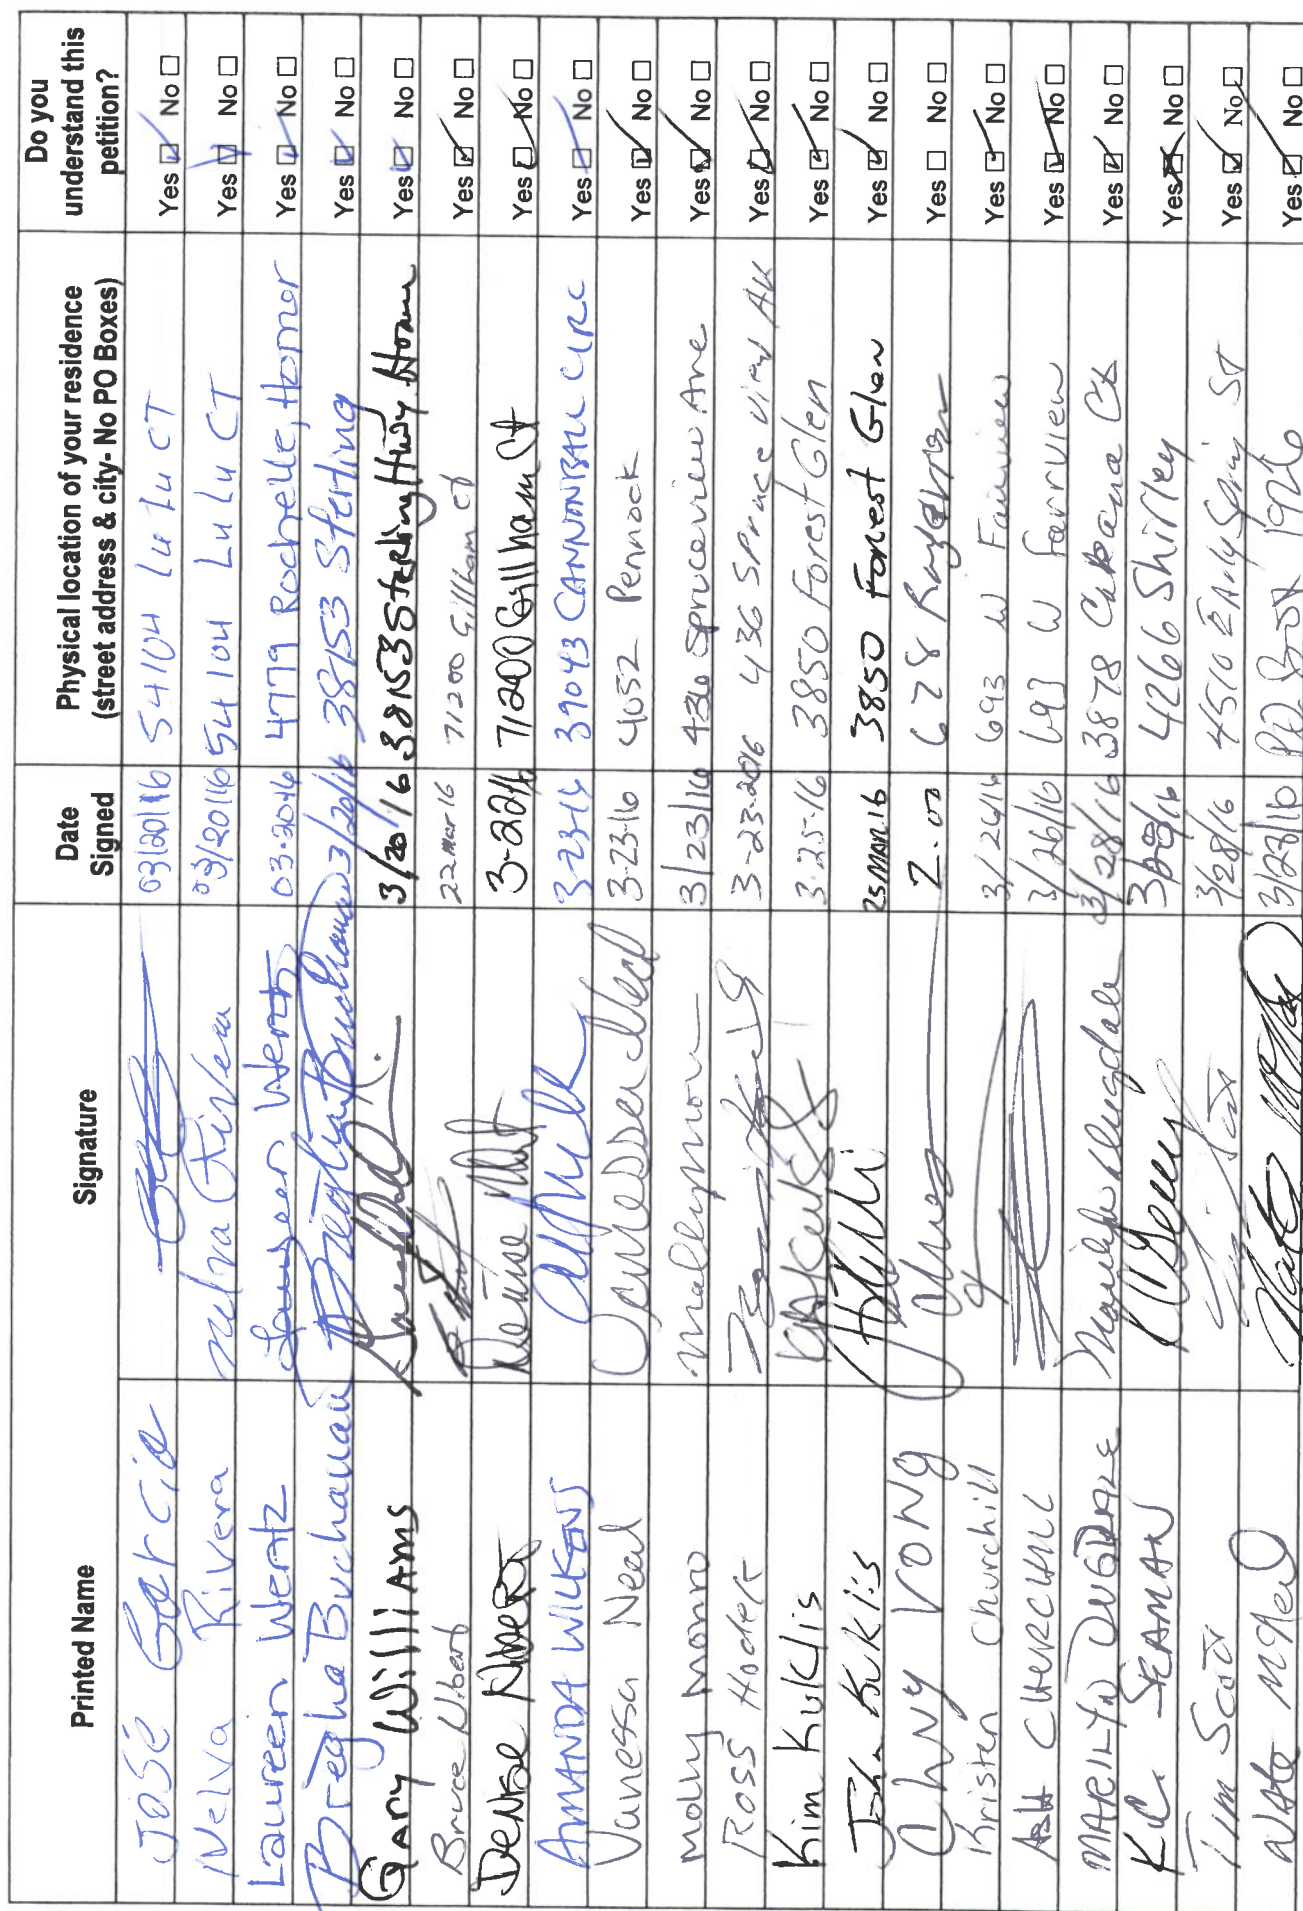 Printed Name Signature Date Signed Physical location of your residence (street address & city- No PO Boxes) Do you understand this petition?
José Garcia 03/20/16 54104 Lu Lu CT Yes No
Nelva Rivera Nelva Rivera 03/20/16 54104 Lu Lu CT Yes No
Laureen Wentz Laureen Wentz 03.20.16 4779 Rochelle, Homer Yes No
Bregha Buchanan Bregha Buchanan 3/20/16 38153 Sterling Yes No
Gary Williams 3/20/16 38153 Sterling Hwy. Homer Yes No
Bruce Nibert 22 Mar 16 71200 Gillham Ct Yes No
Denise Nibert Denise 3-22-16 71200 Gillham Ct Yes No
AMANDA WILKENS 3-23-16 39043 CANNONBALL CIRC Yes No
Vanessa Neal Vanessa Neal 3-23-16 4052 Pennock Yes No
Molly Monro 3/23/16 436 Spruceview Ave Yes No
Ross Hodek 3-23-2016 436 Spruce View AK Yes No
Kim Kuklis 3-25-16 3850 Forest Glen Yes No
John Kuklis 25 MAR 16 3850 Forest Glen Yes No
Chny VONG Yes No
Kristen Churchill 3/26/16 693 W Fairview Yes No
CHURCHILL 3/26/16 693 W Fairview Yes No
MARILYN DUGDALE Marilyn Dugdale 3/28/16 3878 Cabana Ct Yes No
KC SEAMAN 4266 Shirley Yes No
Tim Scott 3/28/16 4510 Early Spring ST Yes No
Nate 3/28/16 PO Box 1926 Yes No